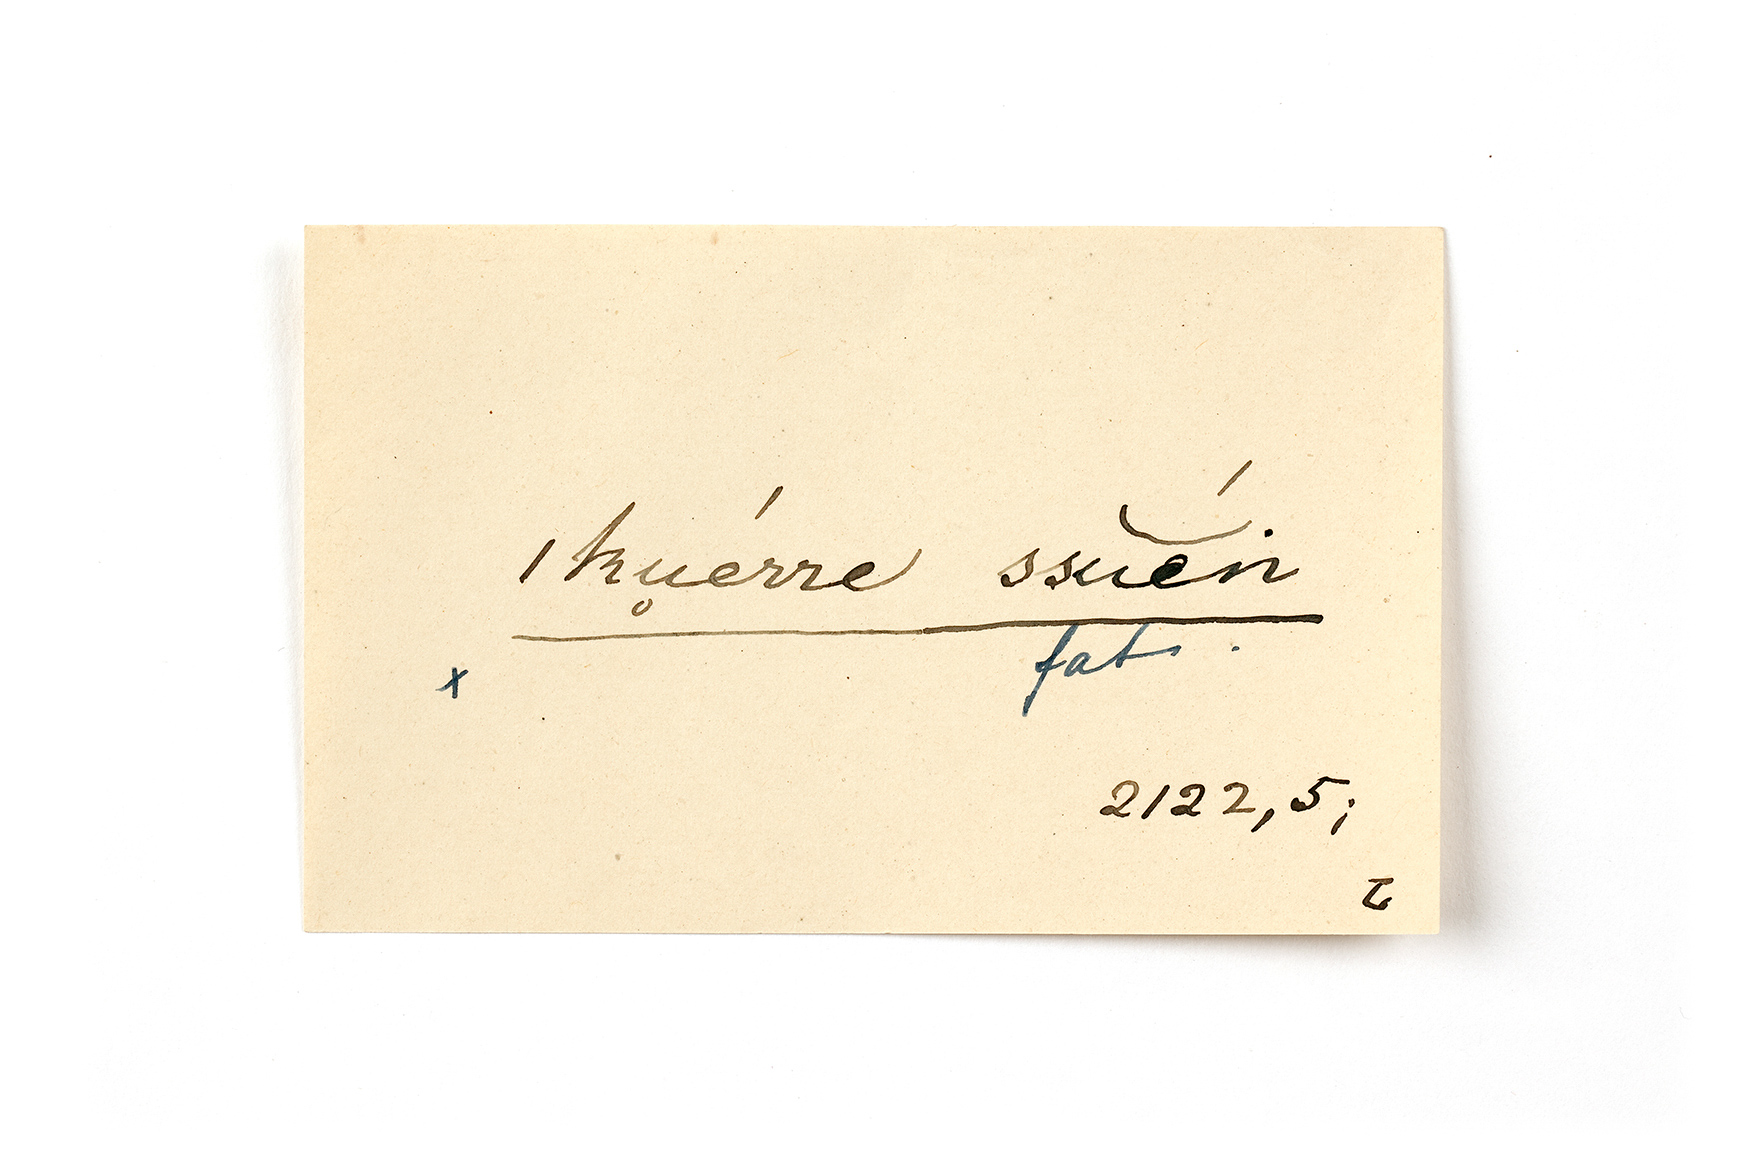 ıku̥érre ssuĕ́n
fats.
x
2122,5;